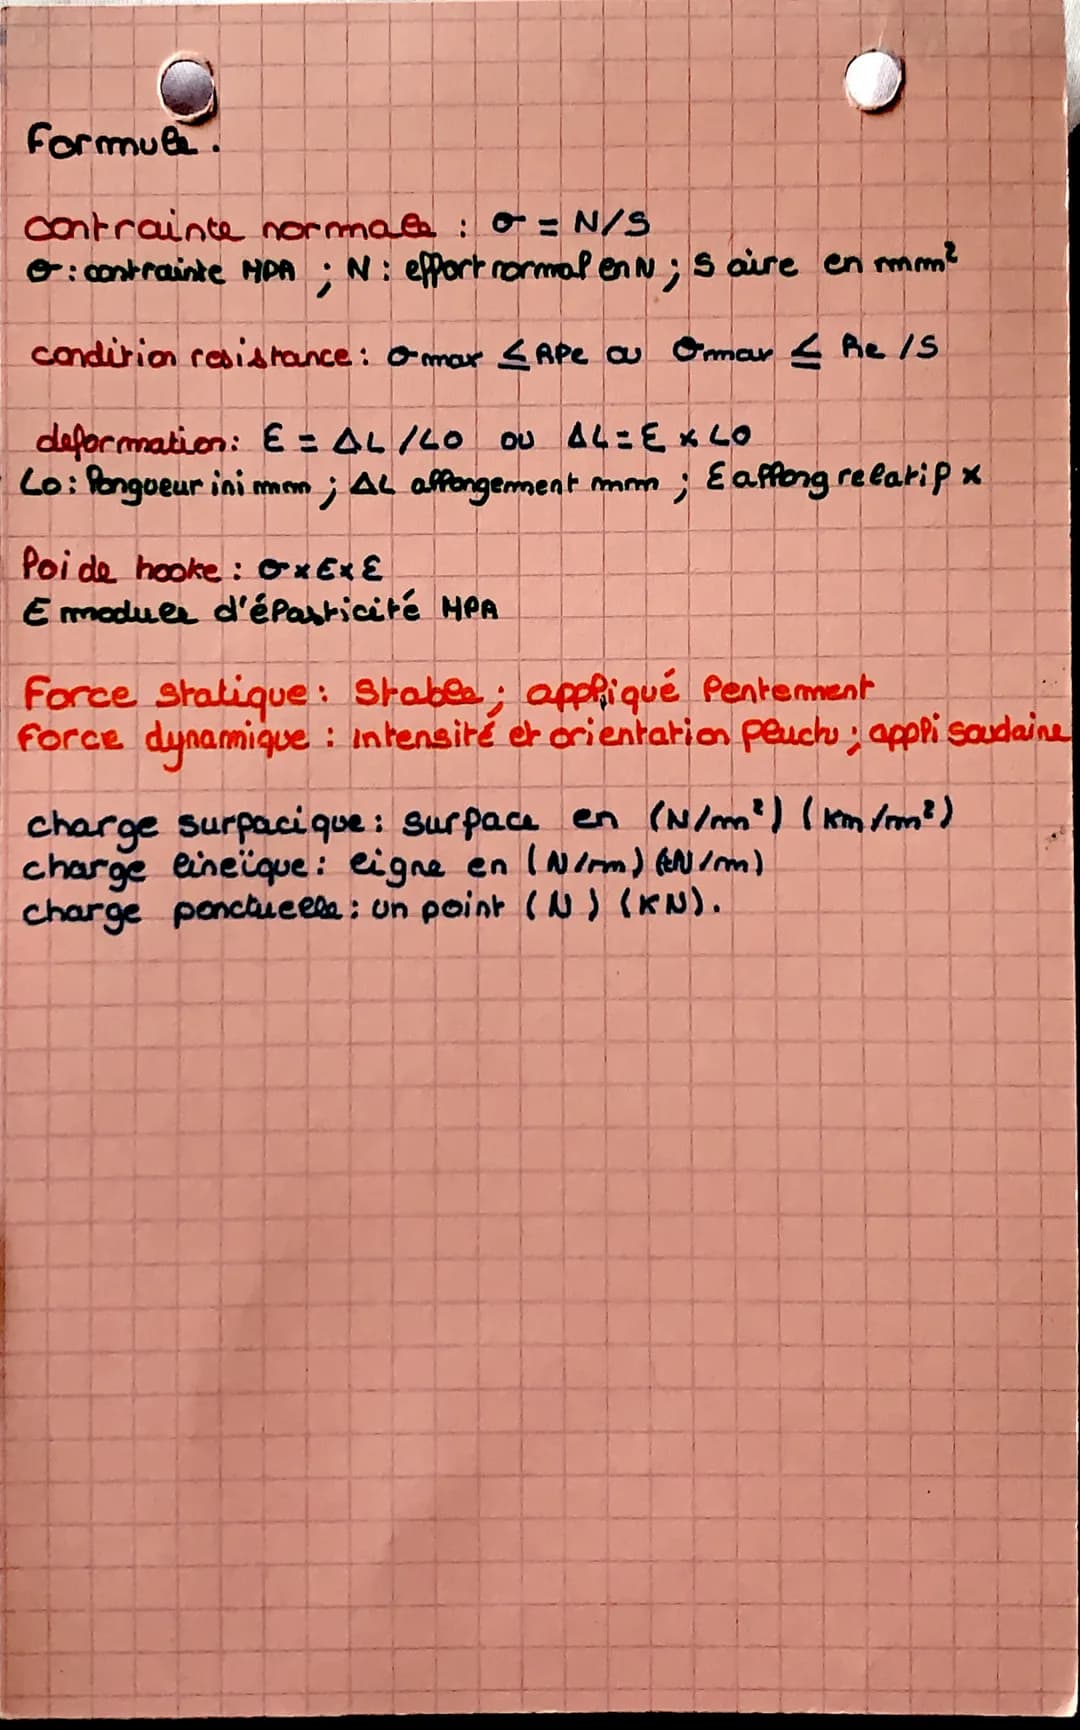 Formule.
contrainte normale : σ = N/S
σ : contrainte MPA ; N : effort normal en N ; S aire en mm²
condition resistance : σmax ≤ RPe ou σmax ≤ Re /S
deformation: Ɛ = ΔL /LO ou ΔL = Ɛ x LO
Lo : longueur ini mm ; ΔL allongement mm ; Ɛ allong relatif x
loi de hooke : σ x E x Ɛ
E module d'élasticité MPA
Force statique : Stable ; appliqué lentement
Force dynamique : intensité et orientation fluctu ; appli soudaine
charge surfacique : surface en (N/m²) (km/m²)
charge lineïque : ligne en (N/m) (kN/m)
charge ponctuelle : un point (N) (KN).